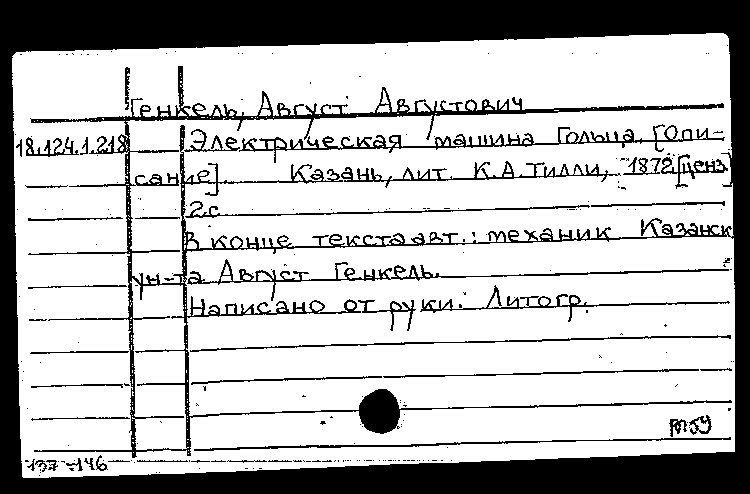 Генкель, Август Августович
18.124.1.218 Электрическая машина Гольца. [Опи-
сание]. Казань, лит. К.А. Тилли, 1872 [ценз]
2с.
В конце текста авт.: механик Казанск
ун-та Август Генкель.
Написано от руки. Литогр.
137-146